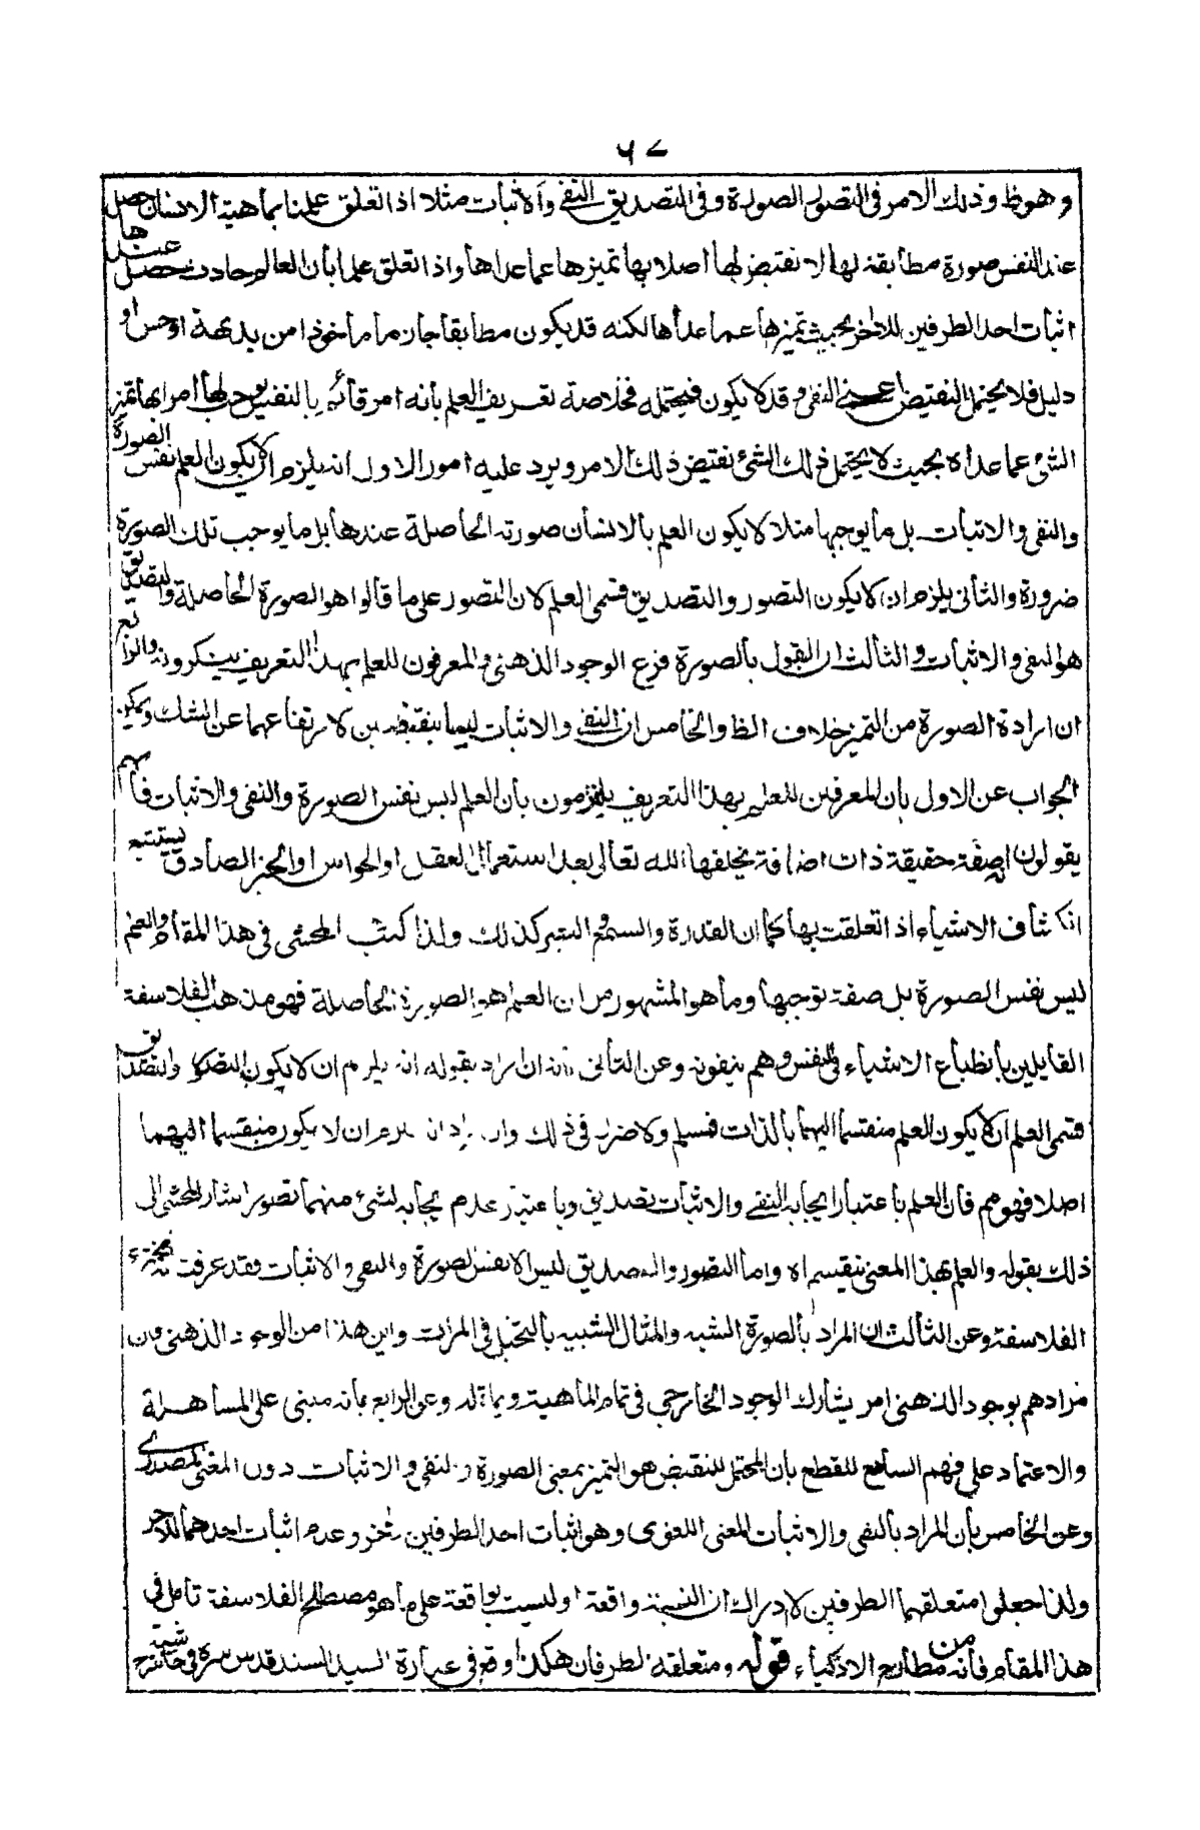 ٦٧
وهو ظ وذلك الامر فى التصور الصورة وفى التصديق النفى والاثبات مثلا اذا تعلق علمنا بماهية الانسان حصل
عند النفس صورة مطابقة لها لا نقيض لها اصلا بها تميزها عما عداها واذا تعلق علمها بأن العالم حادث حصل عندها
اثبات احد الطرفين للاخر بحيث تميزها عما عداها لكنه قد يكون مطابقا جازما مأخوذا من بداهة او حس او
دليل فلا يحتمل النقيض اعنى النفى وقد لا يكون فيحتمله فخلاصة تعريف العلم بأنه امر قائم بالنفس يوجب لها امرا بها تميز
الشئ عما عداه بحيث لا يحتمل ذلك الشئ نقيض ذلك الامر ويرد عليه امور الاول انه يلزم ان لا يكون العلم نفس الصورة
والنفى والاثبات بل ما يوجبها مثلا لا يكون العلم بالانسان صورته الحاصلة عندها بل ما يوجب تلك الصورة
ضرورة والثانى يلزم ان لا يكون التصور والتصديق قسمى العلم لان التصور على ما قالوا هو الصورة الحاصلة والتصديق
هو النفى والاثبات والثالث ان القول بالصورة فرع الوجود الذهنى والمعرفون للعلم بهذا التعريف ينكرونه والرابع
ان ارادة الصورة من التميز خلاف الظ والخامس ان النفى والاثبات ليسا بنقيضين لارتفاعهما عن الشك ويمكن
الجواب عن الاول بان المعرفين للعلم بهذا التعريف يلتزمون بأن العلم ليس نفس الصورة والنفى والاثبات فانهم
يقولون انه صفة حقيقة ذات اضافة يخلقها الله تعالى بعد استعمال العقل او الحواس او الخبر الصادق يستتبع
انكشاف الاشياء اذا تعلقت بها كما ان القدرة والسمع والبصر كذلك ولذا كتب المحشى فى هذا المقام والعلم
ليس نفس الصورة بل صفة توجبها وما هو المشهور من ان العلم هو الصورة الحاصلة فهو مذهب الفلاسفة
القايلين بأنطباع الاشياء فى النفس وهم ينفونه وعن الثانى بأنه ان اراد بقوله انه يلزم ان لا يكون التصور والتصديق
قسمى العلم ان لا يكون العلم منقسما اليهما بالذات فمسلم ولا ضرر فى ذلك وان اراد انه يلزم ان لا يكون منقسما اليهما
اصلا فهو مم فان العلم باعتبار ايجابه النفى والاثبات تصديق وباعتبار عدم ايجابه لشئ منهما تصور اشار المحشى الى
ذلك بقوله والعلم بهذا المعنى ينقسم اه واما التصور والتصديق ليس الا نفس الصورة والنفى والاثبات فقد عرفت
الفلاسفة وعن الثالث ان المراد بالصورة الشبه والمثال الشبيه بالتخيل فى المرات واين هذا من الوجود الذهنى فان
مرادهم بوجود الذهنى امر يشارك الوجود الخارجى فى تمام الماهية ويماثله وعن الرابع بانه مبنى على المساهلة
والاعتماد على فهم السامع للقطع بان المحتمل للنقيض هو التميز بمعنى الصورة والنفى والاثبات دون المعنى المصدرى
وعن الخامس بأن المراد بالنفى والاثبات المعنى اللغوى وهو اثبات احد الطرفين للاخر وعدم اثبات احدهما للاخر
ولذا جعلوا متعلقهما الطرفين لا ادراك ان النسبة واقعة او ليست بواقعة على ما هو مصطلح الفلاسفة تأمل فى
هذا المقام فأنه من مطارح الاذكياء قوله ومتعلقه الطرفان هكذا وقع فى عبارة السيد السند قدس سره فى حاشية شرح